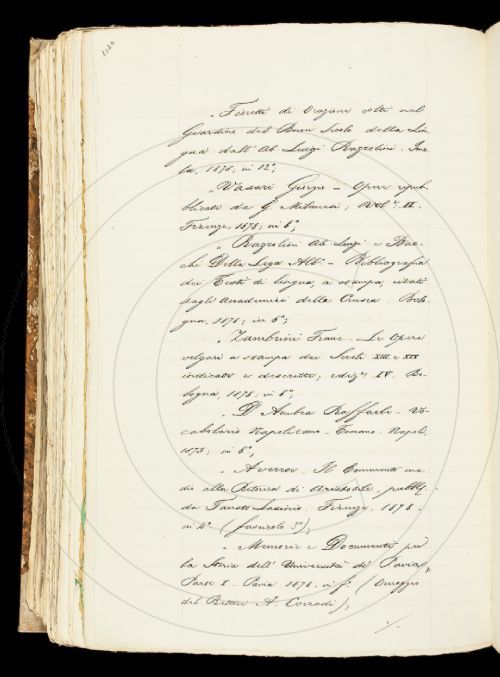 1020
„ Fioretti di Orazioni colti nel
Giardino del Buon Secolo della Lin-
gua dall' Ab. Luigi Razzolini. Imo-
la, 1878, in 12°;
„ Vasari Giorgio – Opere ripub-
blicate da G. Milanesi, Vol.e II.
Firenze, 1878; in 8°;
„ Razzolini Ab. Luigi e Bac-
chi Della Lega Alb.º – Bibliografia
dei Testi di lingua, a stampa, citati
dagli Accademici della Crusca. Bolo-
gna, 1878; in 8°;
„ Zambrini Franc. – Le Opere
volgari a stampa dei Secoli XIII e XIV
indicate e descritte; ediz.e IV. Bo-
logna, 1878; in 8°;
„ D'Ambra Raffaele – Vo-
cabolario Napolitano-Toscano. Napoli,
1873; in 8°;
„ Averroe. Il Commento me-
dio alla Retorica di Aristotele, pubbl.
da Fausto Lasinio. Firenze, 1878.
in 4° (fascicolo 3°);
„ Memorie e Documenti per
la Storia dell' Università di Pavia,
Parte I – Pavia 1878. in f.º (Omaggio
del Rettore A. Corradi);
./.